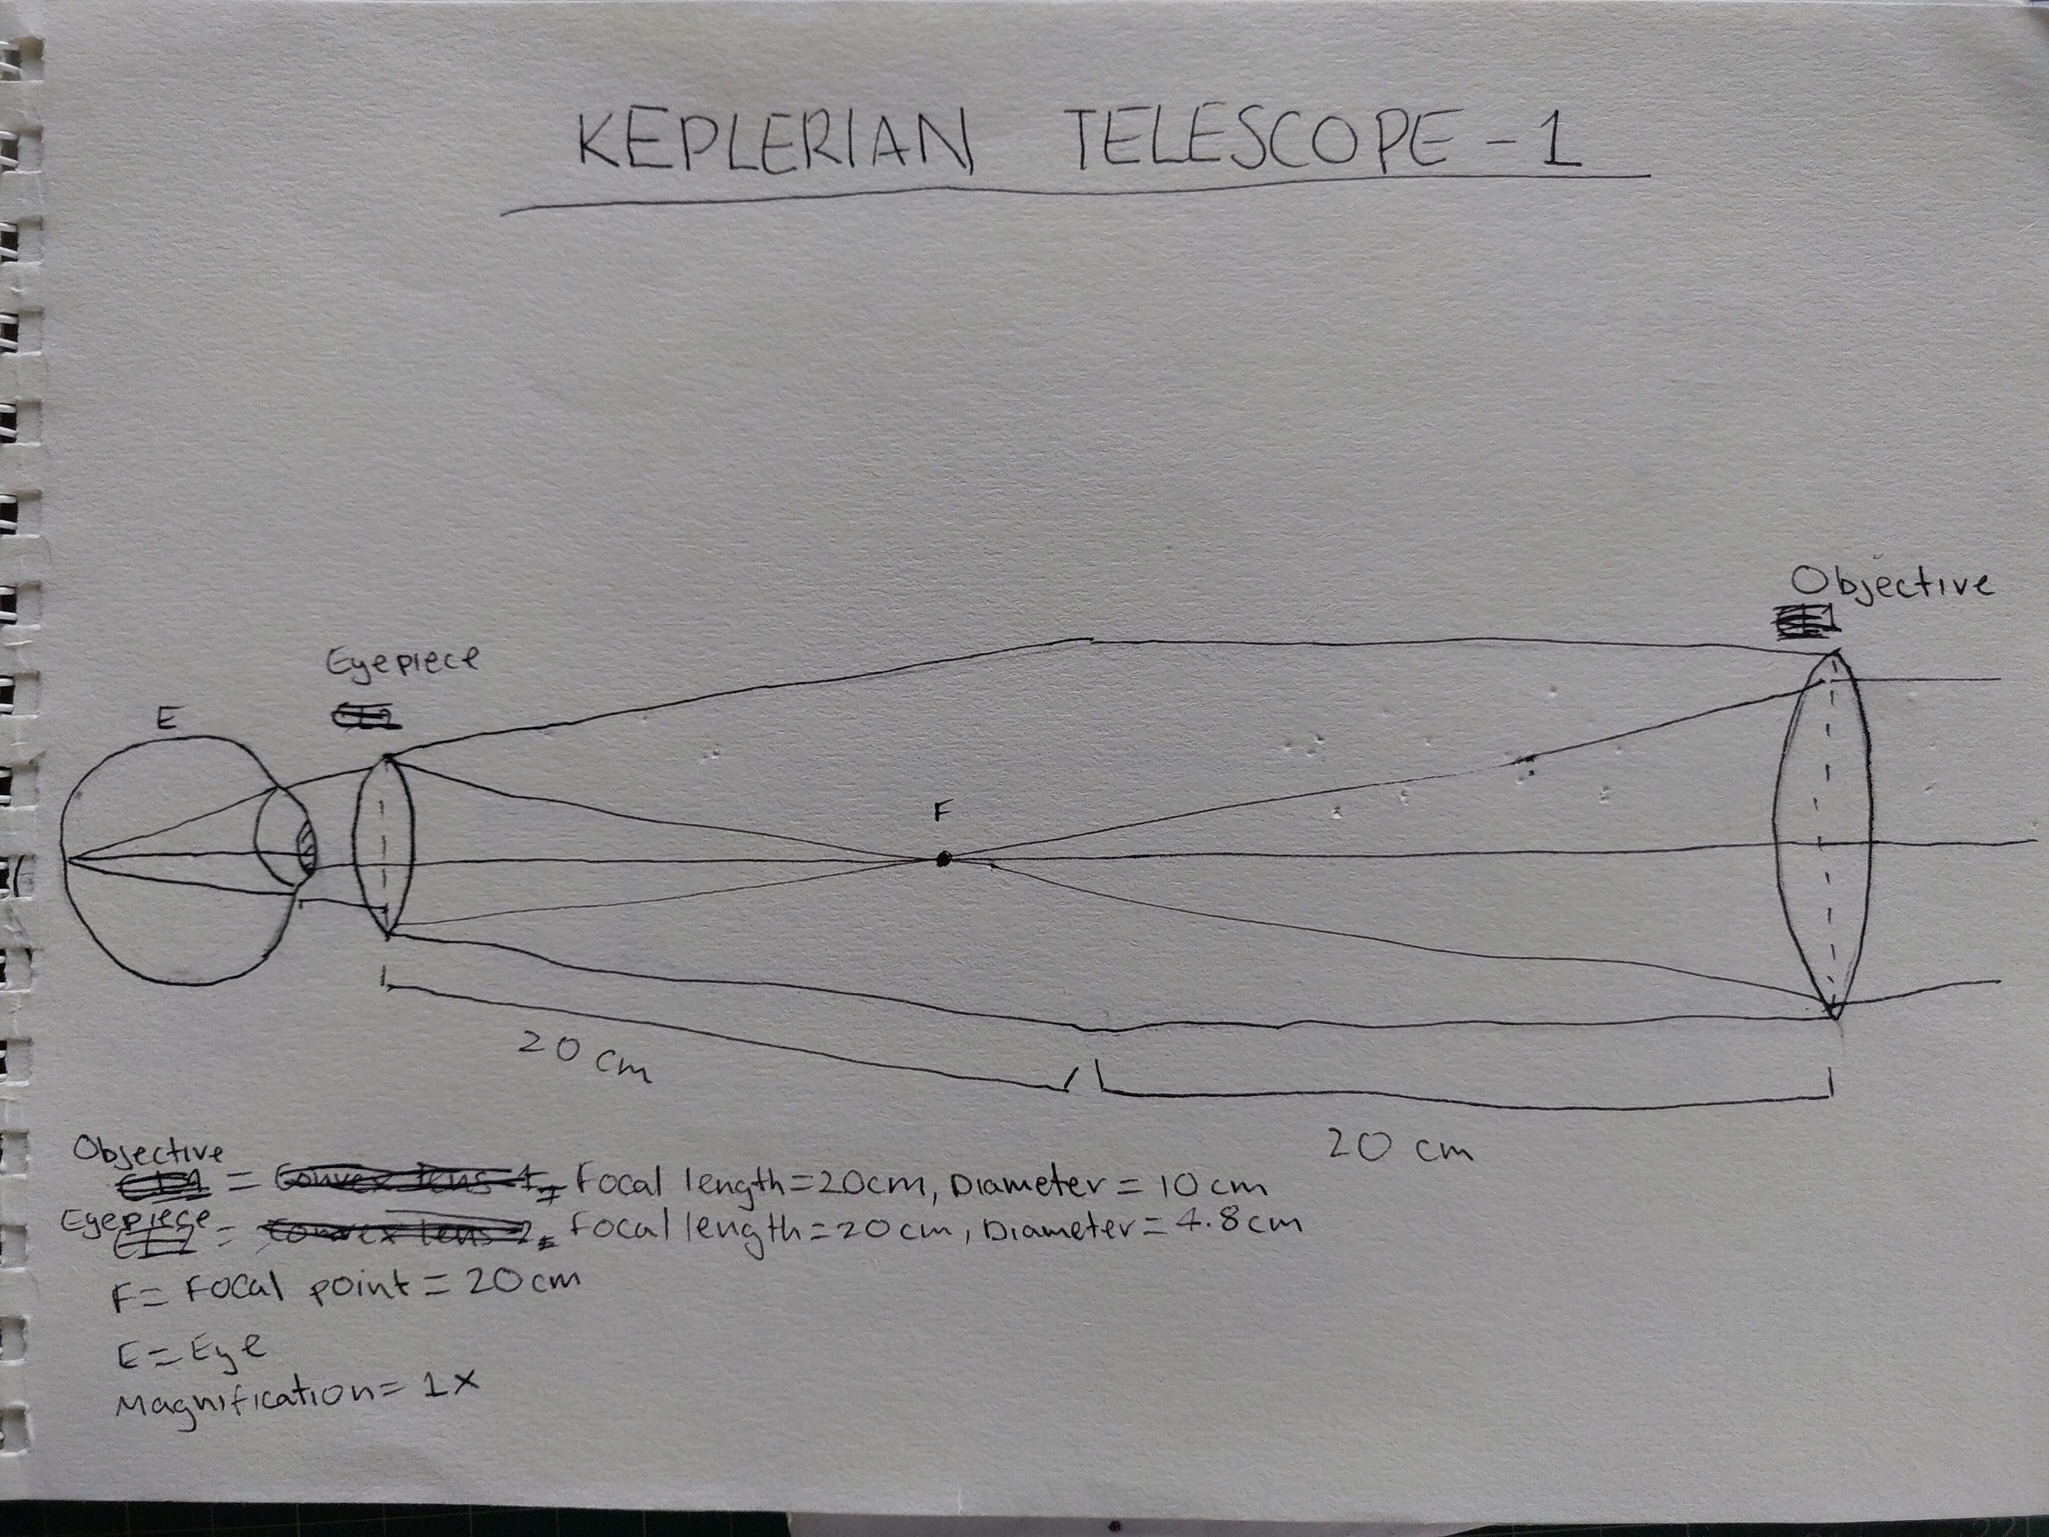 KEPLERIAN TELESCOPE - 1
Objective
Eyepiece
E
F
20 cm
20 cm
Objective
= Convex lens 1 = Focal length = 20cm, Diameter = 10 cm
Eyepiece
CL2 = Convex lens 2 = Focal length = 20 cm, Diameter = 4.8cm
F = Focal point = 20cm
E = Eye
Magnification = 1x